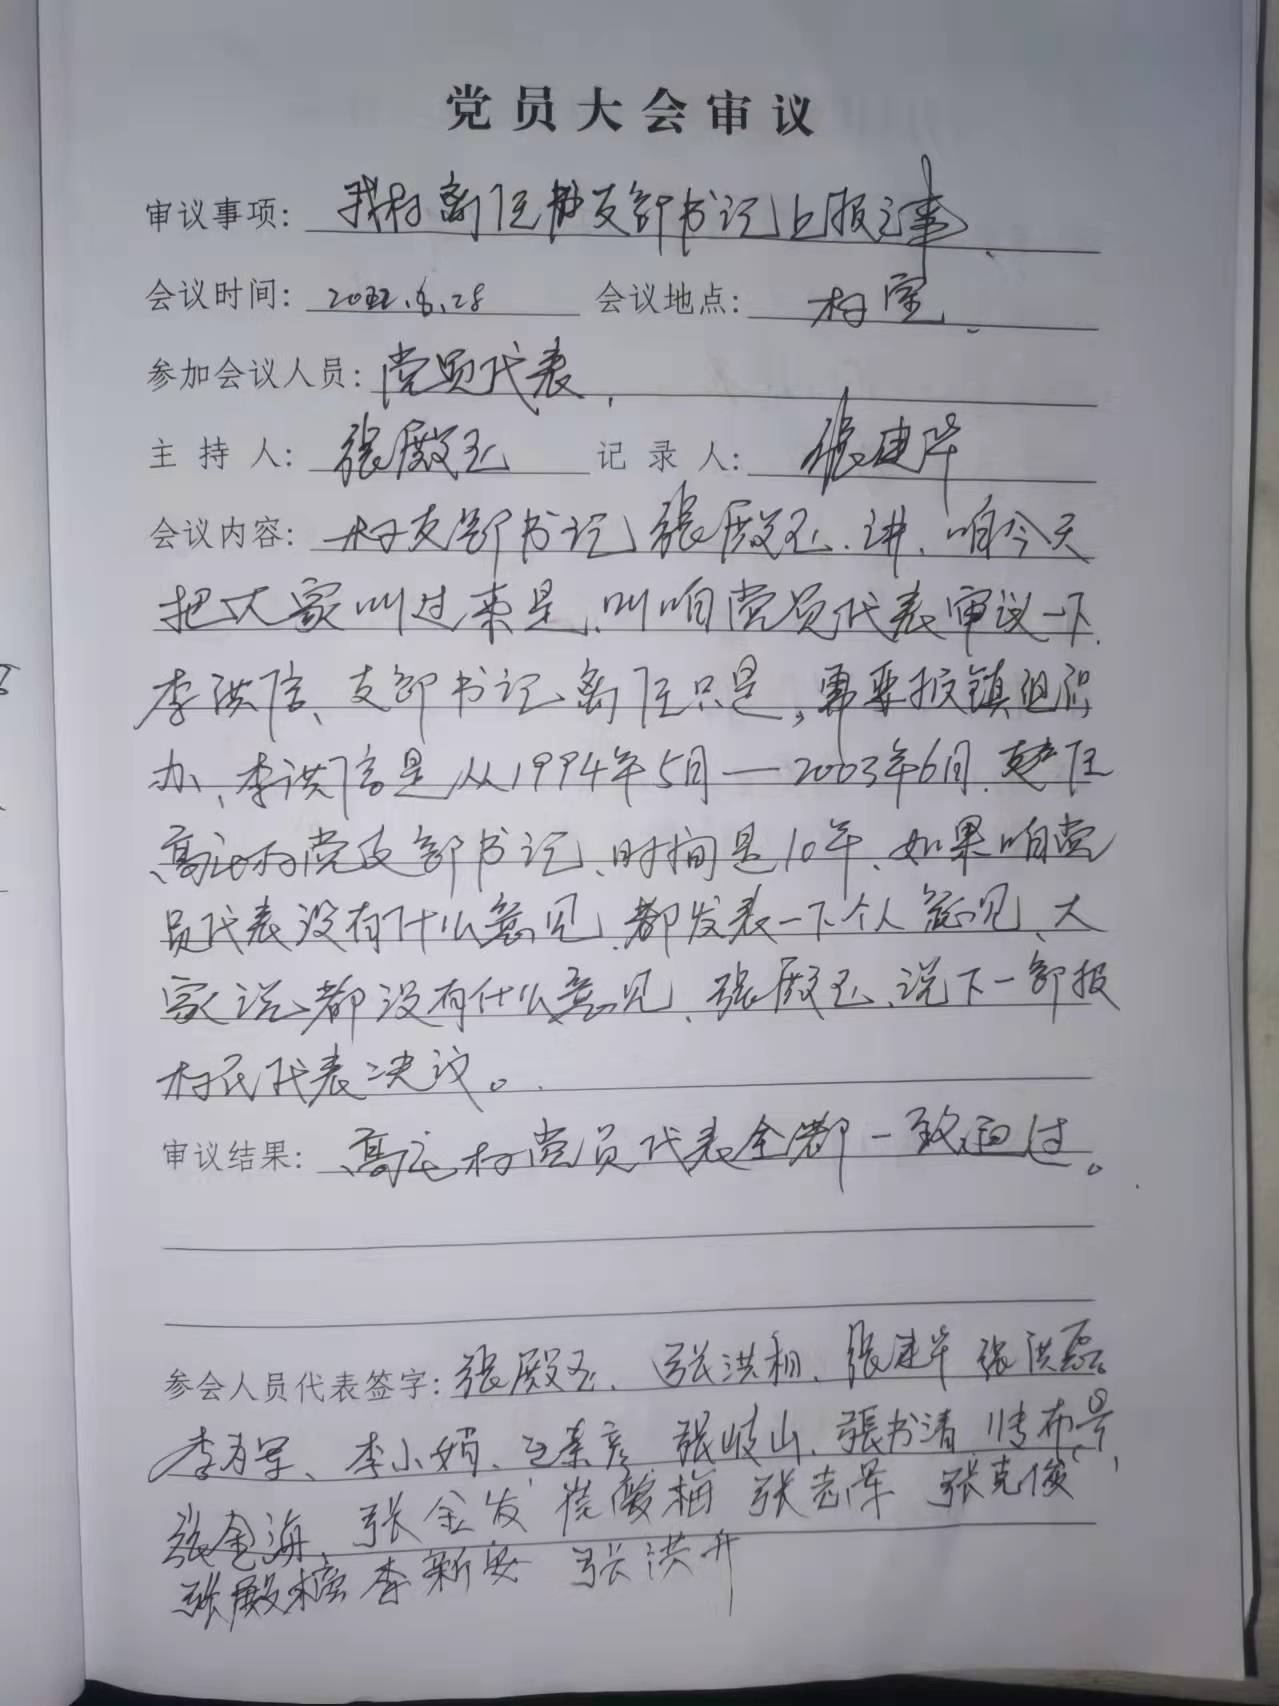 党员大会审议
审议事项: 我村离任支部书记上报之事
会议时间: 2022.6.28 会议地点: 村室
参加会议人员: 党员代表
主持人: 张殿玉 记录人: 张建华
会议内容: 村支部书记张殿玉、讲、咱今天
把大家叫过来是、叫咱党员代表审议一下
李洪信、支部书记离任只是,需要报镇组织
办、李洪信是从1994年5月—2003年6月、任
高庄村党支部书记、时间是10年、如果咱党
员代表没有什么意见、都发表一下个人意见、大
家说都没有什么意见、张殿玉、说下一部报
村民代表决议。
审议结果: 高庄村党员代表全部一致通过。
参会人员代表签字: 张殿玉、张洪相、张建华 张洪磊
李为军、李小娟、张岐山、張书清
张金海、张金发 梅 张志军 张克俊
张殿 李新安 张洪升